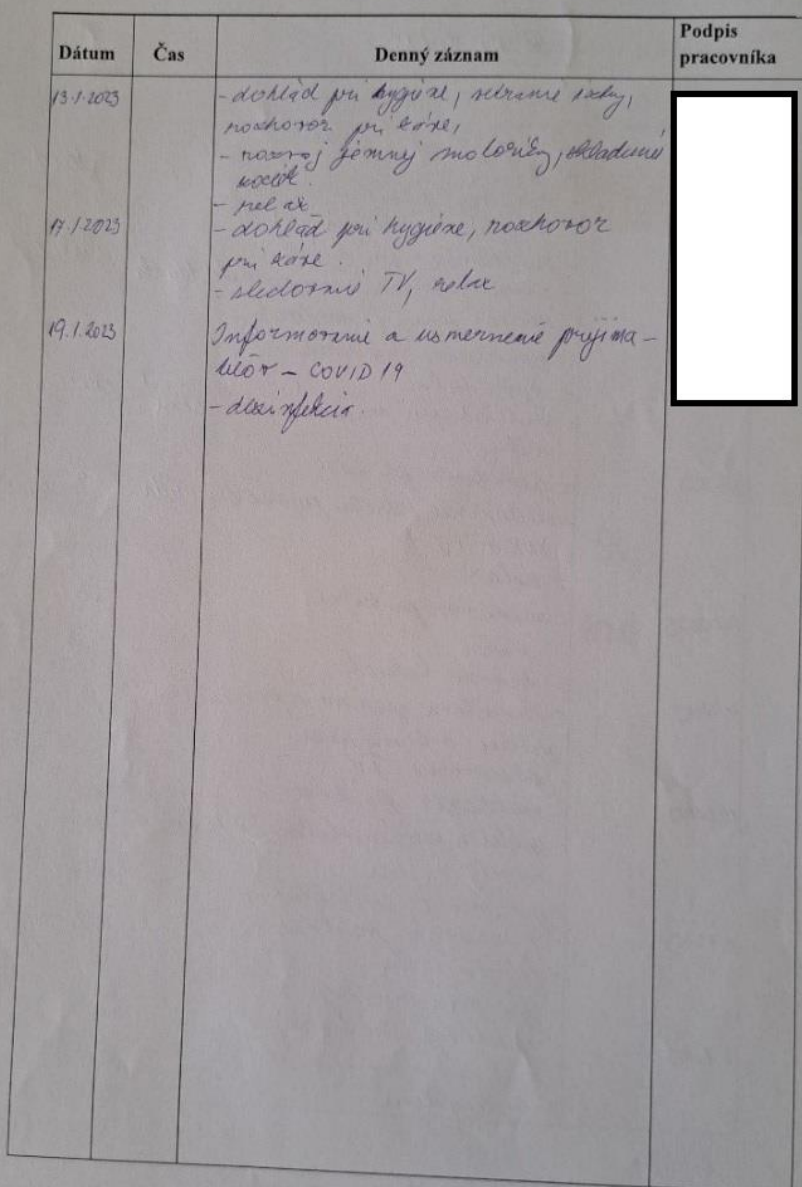 Dátum Čas Denný záznam Podpis pracovníka
13.1.2023 - dohľad pri hygiene,
rozhovor pri káve,
- rozvoj jemnej motoriky, skladanie
kociek.
- relax
17.1.2023 - dohľad pri hygiene, rozhovor
pri káve.
- sledovanie TV, relax
19.1.2023 Informovanie a usmernenie prijíma-
teľov - COVID 19
- dezinfekcia.